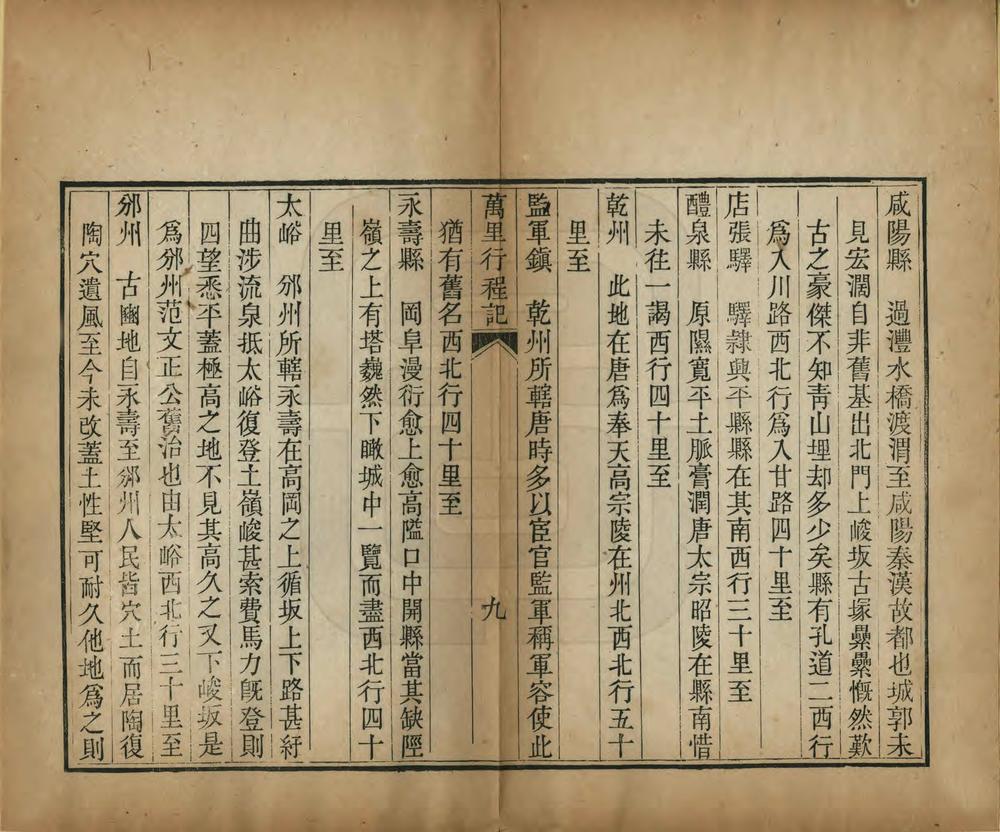 咸陽縣　過灃水橋渡渭至咸陽秦漢故都也城郭未
見宏濶自非舊基出北門上峻坂古塚纍纍慨然歎
古之豪傑不知靑山埋却多少矣縣有孔道二西行
爲入川路西北行爲入甘路四十里至
店張驛　驛隸興平縣縣在其南西行三十里至
醴泉縣　原隰寬平土脈膏潤唐太宗昭陵在縣南惜
未往一謁西行四十里至
乾州　此地在唐爲奉天高宗陵在州北西北行五十
里至
監軍鎭　乾州所轄唐時多以宦官監軍稱軍容使此
萬里行程記　九
猶有舊名西北行四十里至
永壽縣　岡阜漫衍愈上愈高隘口中開縣當其缺陘
嶺之上有塔巍然下瞰城中一覽而盡西北行四十
里至
太峪　邠州所轄永壽在高岡之上循坂上下路甚紆
曲涉流泉抵太峪復登土嶺峻甚索費馬力旣登則
四望悉平蓋極高之地不見其高久之又下峻坂是
爲邠州范文正公舊治也由太峪西北行三十里至
邠州　古豳地自永壽至邠州人民皆穴土而居陶復
陶穴遺風至今未改蓋土性堅可耐久他地爲之則